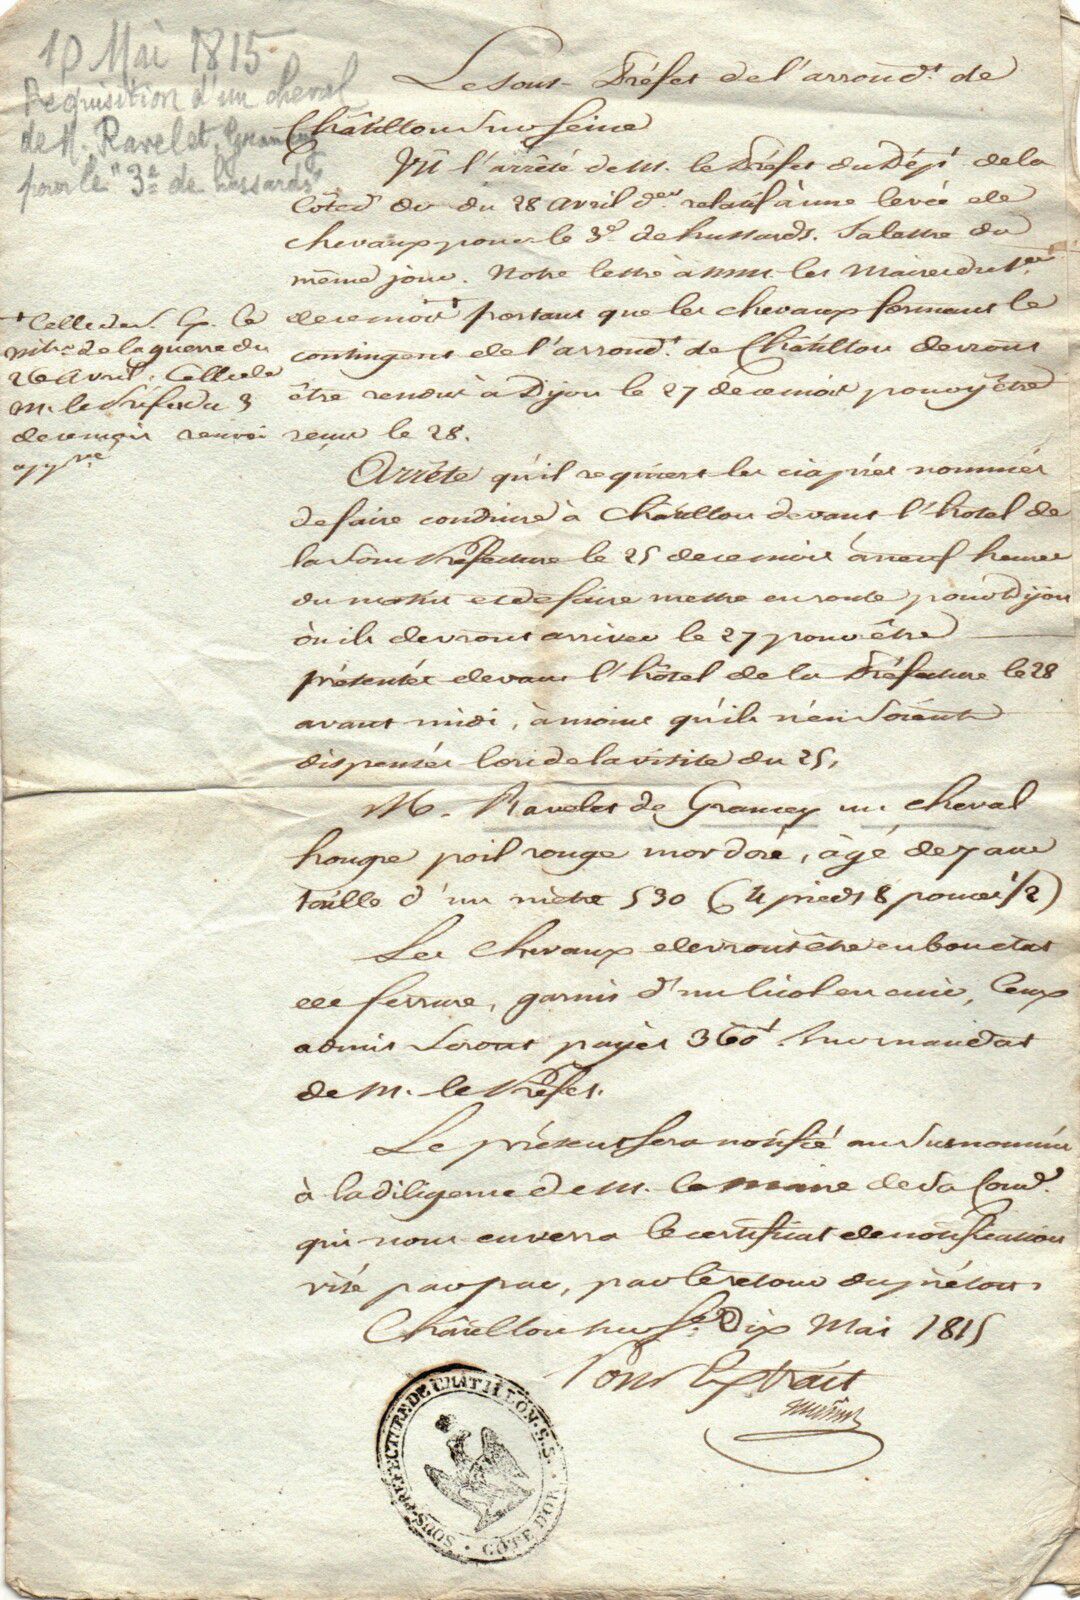 10 Mai 1815
Requisition d'un cheval
de M. Ravelet, Grancey
pour le "3e de hussards"
Le Sous-Préfet de l'arrond.t de
Châtillon sur Seine
Vu l'arrêté de M. le Préfet du Dép.t de la
Côte d'or du 28 avril d.er relatif à une levée de
chevaux pour le 3e de hussards. Sa lettre du
même jour. Notre lettre à MM. les Maires du 1.er
de ce mois + portant que les chevaux formant le
contingent de l'arrond.t de Châtillon devront
être rendus à Dijon le 27 de ce mois pour y être
reçus le 28.
+ Celle de S. Ex. le
Mtre de la guerre du
26 avril, Celle de
M. le Préfet du 3
de ce mois renvoi
app.vé
Arrête qu'il requiert les ciaprès nommés
de faire conduire à Châtillon devant l'hôtel de
la Sous Préfecture le 25 de ce mois à neuf heures
du matin et de faire mettre en route pour Dijon
où ils devront arriver le 27 pour être
présentés devant l'hôtel de la Préfecture le 28
avant midi, à moins qu'ils n'en soient
dispensés lors de la visite du 25,
M. Ravelet de Grancey un cheval
hongre poil rouge mordoré, âgé de 7 ans
taille d'un mètre 530 (4 pieds 8 pouces 1/2)
Les chevaux devront être en bon état
de ferrure, garnis d'un licol en cuir, Ceux
admis seront payés 360f. sur mandat
de M. le Préfet.
Le présent sera notifié au susnommé
à la diligence de M. le maire de sa Com.e
qui nous enverra le certificat de notification
visé par par, par le retour du piéton.
Châtillon sur S.e Dix Mai 1815
Pour Extrait
SOUS-PRÉFECTURE DE CHATILLON.S.S.
CÔTE D'OR